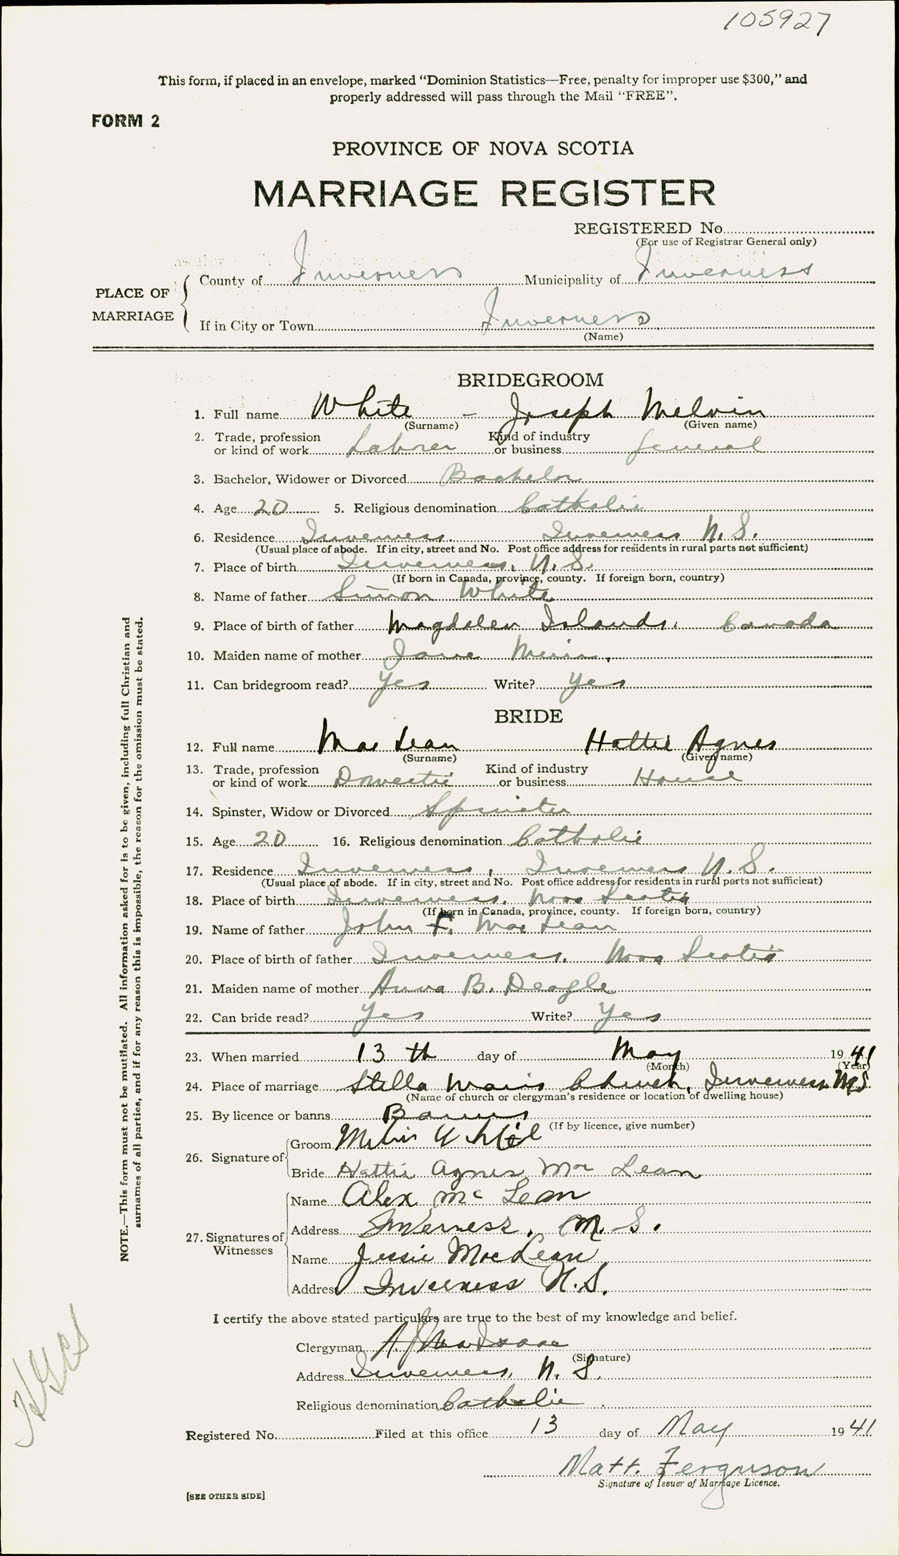 105927
This form, if placed in an envelope, marked "Dominion Statistics—Free, penalty for improper use $300," and
properly addressed will pass through the Mail "FREE".
FORM 2
PROVINCE OF NOVA SCOTIA
MARRIAGE REGISTER
REGISTERED No.
(For use of Registrar General only)
PLACE OF MARRIAGE
County of Inverness Municipality of Inverness
If in City or Town Inverness
(Name)
BRIDEGROOM
1. Full name White - Joseph Melvin
(Surname) (Given name)
2. Trade, profession or kind of work Labrer Kind of industry or business General
3. Bachelor, Widower or Divorced Bachelor
4. Age 20 5. Religious denomination Catholic
6. Residence Inverness. Inverness N.S.
(Usual place of abode. If in city, street and No. Post office address for residents in rural parts not sufficient)
7. Place of birth Inverness, N.S.
(If born in Canada, province, county. If foreign born, country)
8. Name of father Simon White
9. Place of birth of father Magdelen Islands. Canada
10. Maiden name of mother Jane
11. Can bridegroom read? Yes Write? Yes
BRIDE
12. Full name Mac Lean Hattie Agnes
(Surname) (Given name)
13. Trade, profession or kind of work Domestic Kind of industry or business House
14. Spinster, Widow or Divorced Spinster
15. Age 20 16. Religious denomination Catholic
17. Residence Inverness, Inverness N.S.
(Usual place of abode. If in city, street and No. Post office address for residents in rural parts not sufficient)
18. Place of birth Inverness. Nova Scotia
(If born in Canada, province, county. If foreign born, country)
19. Name of father John F. Mac Lean
20. Place of birth of father Inverness. Nova Scotia
21. Maiden name of mother Anna B. Deagle
22. Can bride read? Yes Write? Yes
23. When married 13 th day of May 1941
(Month) (Year)
24. Place of marriage Stella Maris Church, Inverness N.S.
(Name of church or clergyman's residence or location of dwelling house)
25. By licence or banns Banns
(If by licence, give number)
26. Signature of
Groom Melvin White
Bride Hattie Agnes Mac Lean
27. Signatures of Witnesses
Name Alex Mc Lean
Address Inverness, N.S.
Name Jessie MacLean
Address Inverness N.S.
I certify the above stated particulars are true to the best of my knowledge and belief.
Clergyman A J MacIsaac
(Signature)
Address Inverness, N. S.
Religious denomination Catholic
Registered No. Filed at this office 13 day of May 1941
Matt. Ferguson
Signature of Issuer of Marriage Licence.
[SEE OTHER SIDE]
NOTE.—This form must not be mutilated. All information asked for is to be given, including full Christian and
surnames of all parties, and if for any reason this is impossible, the reason for the omission must be stated.